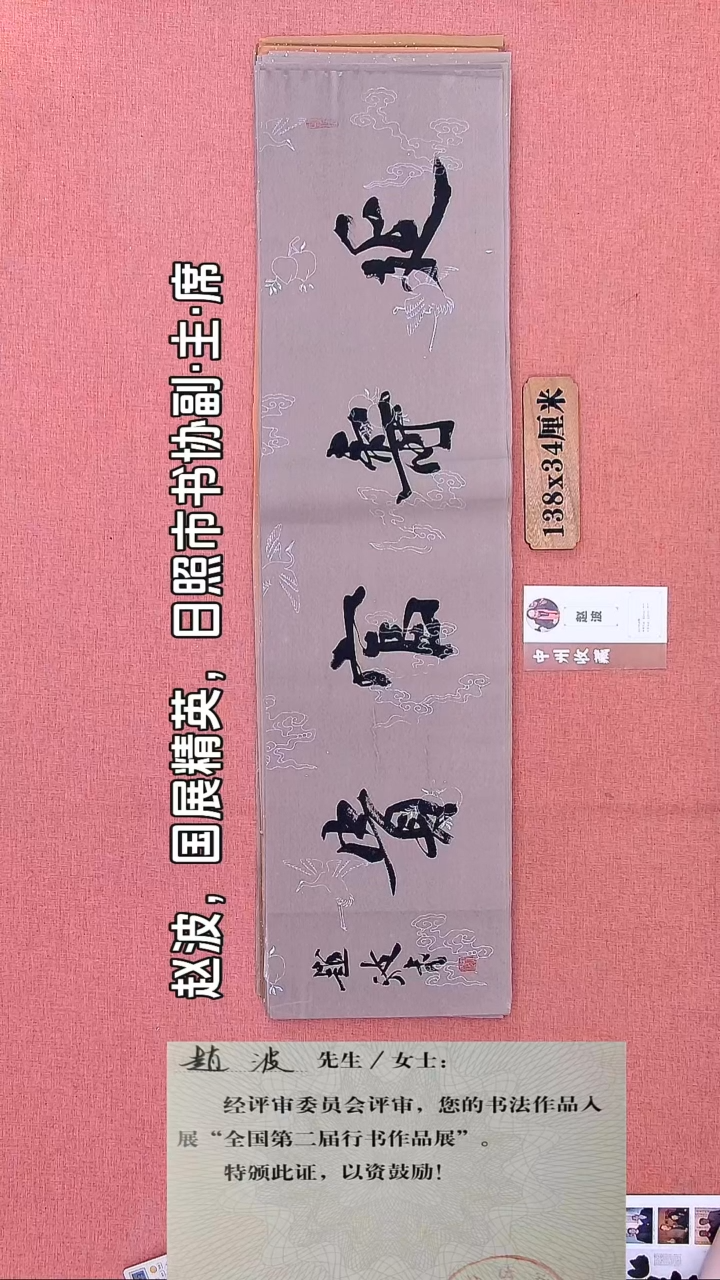 赵波，国展精英，日照市书协副·主·席
延壽富貴
趙波書
138x34厘米
赵波
中州收藏
趙波 先生／女士：
经评审委员会评审，您的书法作品入
展“全国第二届行书作品展”。
特颁此证，以资鼓励！